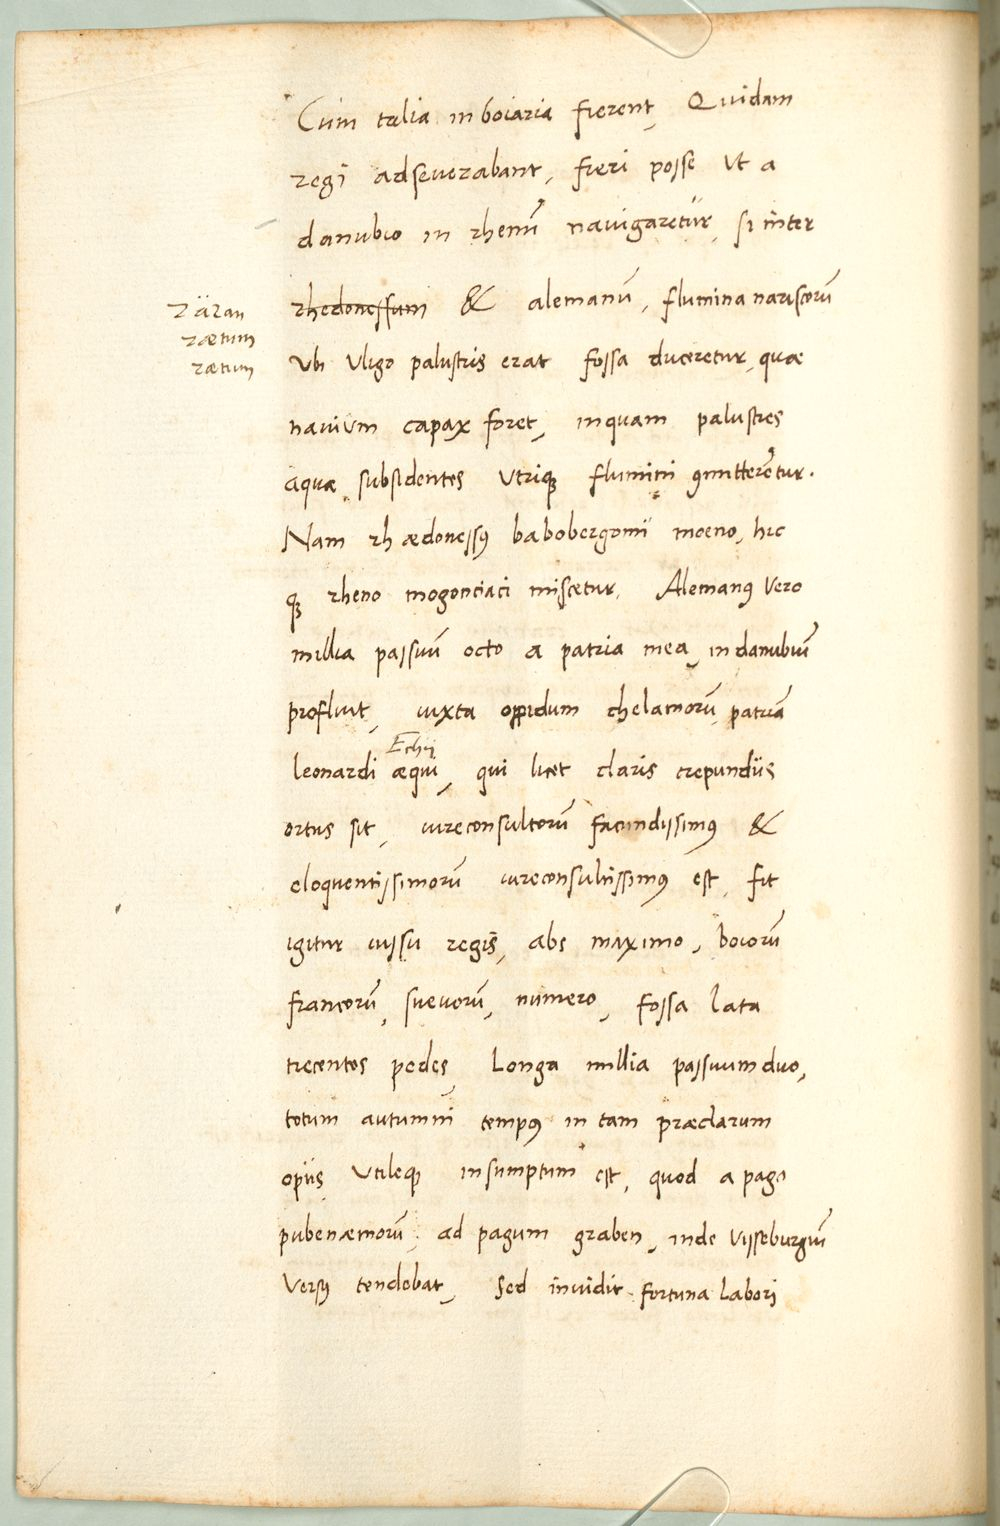 Cum talia in boiaria fierent, Quidam
regi adseuerabant, fieri posse Vt a
danubio in rhenū nauigaretur, si inter
rhedonessum & alemanū, flumina nariscorū
räzan
rætum
rætum
Vbi Vligo palustris erat fossa duceretur, quæ
nauium capax foret, in quam palustres
aquæ subsidentes Vtriqꝫ flumini ꝯmitterētur.
Nam rhædonessꝰ babobergomi moeno, hic
qꝫ rheno mogonciaci miscetur. Alemanꝰ Vero
millia passuū octo a patria mea, in danubiū
profluit, iuxta oppidum chelamorū patriā
Echij
leonardi æqui, qui licet claris crepundiis
ortus sit, iureconsultorū facundissimꝰ &
eloquentissimorū iureconsultissimꝰ est, fit
igitur iussu regis, abs maximo, boiorū
francorū, sueuorū, numero, fossa lata
trecentos pedes, Longa millia passuum duo,
totum autumni tempꝰ in tam præclarum
opus, Vtileqꝫ insumptum est, quod a pago
pubenæmorū, ad pagum graben, inde Visseburgiū
Versꝰ tendebat, Sed inuidit fortuna labori